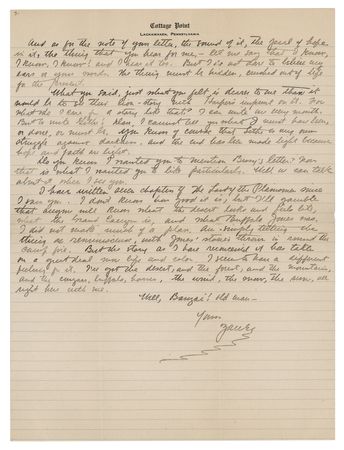 Cottage Point
Lackawaxen, Pennsylvania
And as for the note of your letter, the sound of it, the pearl of hope
in it, the thing that you hear for me, — let me say that I know,
I know, I know! and I hear it too. But I do not dare to believe my
ears or your words. The thing must be hidden, crushed out of life
for the present.
What you said, just what you felt, is dearer to me than it
would be to see their lion-story with Harper's imprint on it. For
what do I care for a story like that? I can write one every month.
But to write letters! Man, I cannot tell you what I must have been,
or done, or must be. You know of course that letter is my own
struggle against darkness, and the end has been made light because
hope and faith are light.
Do you know I wanted you to mentionBurry's letter? Now
that is what I wanted you to like particularly. Well we can talk
about it when I see you.
I have written seven chapters of The Last of the Plainsmen since
I saw you. I don't know how good it is, but I'll gamble
that anyone will know what the desert looks and feels like,
what the Grand Canyon is, and what Buffalo Jones was.
I did not make much of a plan. Am simply telling the
thing as reminiscence, with Jones' stories thrown in around the
camp fire. But the story as I have commenced it has taken
on a great deal more life and color. I seem to have a different
feeling for it. I've got the desert, and the forest, and the mountains,
and the cougars, buffalo, horses, the wind, the snow, the sun, all
right here with me.
Well, Banzai! Old man —
Yours
Zane